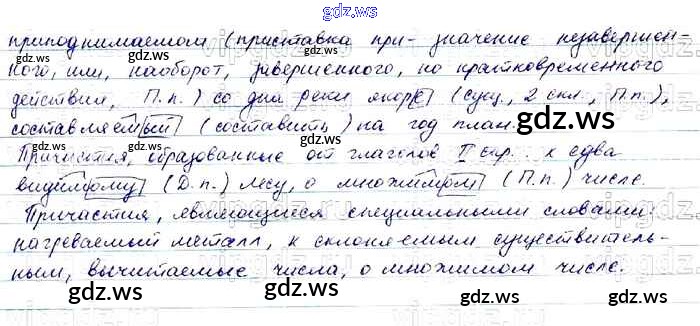 gdz.ws
приподнимаемом (приставка при- значение незавершен-
ного, или, наоборот, завершенного, но кратковременного
действия, П.п.) со дна реки якоре (сущ., 2 скл., П.п.),
составляемый (составить) на год план.
Причастия, образованные от глаголов II спр.: к едва
видимому (Д.п.) лесу, о множимом (П.п.) числе.
Причастия, являющиеся специальными словами:
нагреваемый металл, к склоняемым существитель-
ным, вычитаемые числа, о множимом числе.
gdz.ws gdz.ws gdz.ws